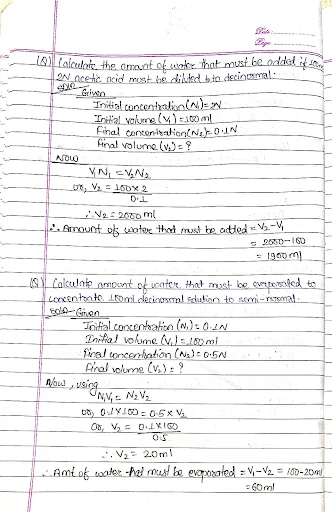 Date:
Page:
(Q) Calculate the amount of water that must be added if 100ml
2N acetic acid must be diluted to decinormal.
soln
Given
Initial concentration (N₁) = 2N
Initial volume (V₁) = 100 ml
Final concentration (N₂) = 0.1N
Final volume (V₂) = ?
Now
V₁N₁ = V₂N₂
or, V₂ = 100 × 2
0.1
∴ V₂ = 2000 ml
∴ Amount of water that must be added = V₂-V₁
= 2000-100
= 1900 ml
(Q) Calculate amount of water that must be evaporated to
concentrate 100ml decinormal solution to semi-normal.
soln - Given
Initial concentration (N₁) = 0.1N
Initial volume (V₁) = 100 ml
Final concentration (N₂) = 0.5N
Final volume (V₂) = ?
Now, using
N₁V₁ = N₂V₂
or, 0.1×100 = 0.5 × V₂
or, V₂ = 0.1×100
0.5
∴ V₂ = 20ml
∴ Amt of water that must be evaporated = V₁-V₂ = 100-20ml
=60ml